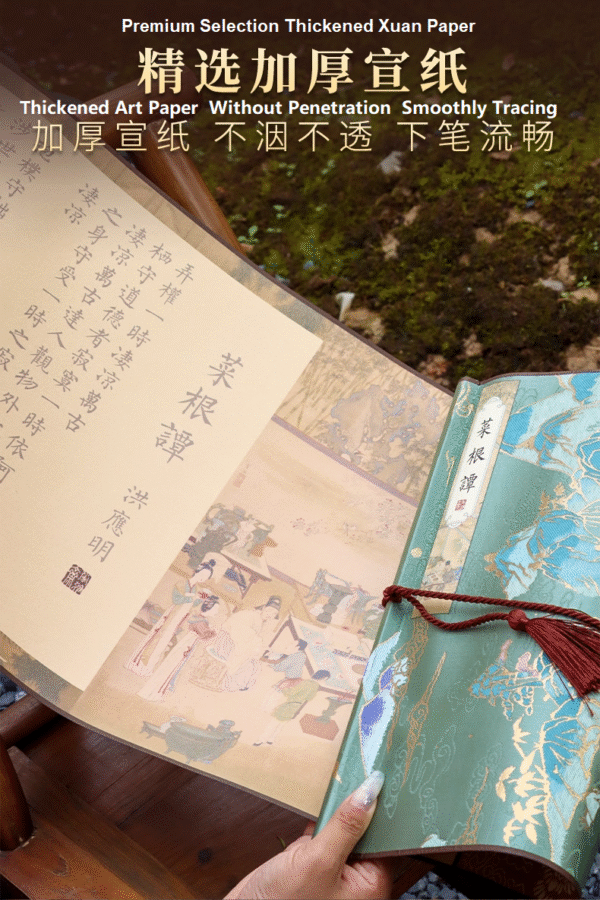 Premium Selection Thickened Xuan Paper
精选加厚宣纸
Thickened Art Paper Without Penetration Smoothly Tracing
加厚宣纸 不洇不透 下笔流畅
菜根譚
洪應明
弄權一時凄凉萬古
栖守道德者寂寞一時依阿
凄凉萬古達人觀物外
之身守受一時之寂
凄凉
菜根譚